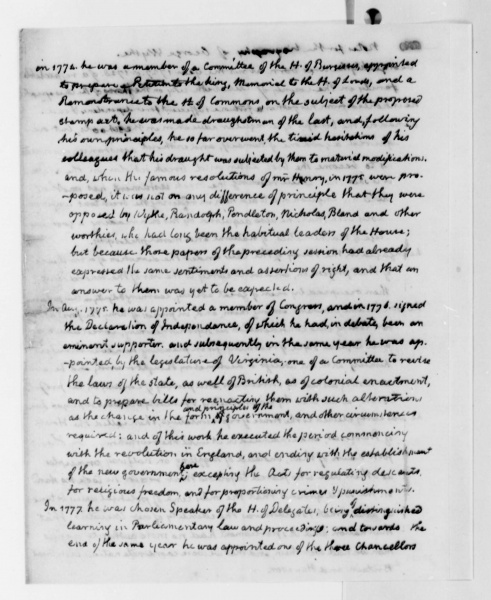 on 1774. he was a member of a Committee of the H. of Burgesses, appointed
to prepare a Petition to the king, Memorial to the H. of Lords, and a
Remonstrance to the H. of Commons, on the subject of the proposed
stamp act, he was made draughtsman of the last, and, following
his own principles, he so far overwent the timid hesitations of his
colleagues that his draught was subjected by them to material modifications.
and, when the famous resolutions of mr Henry, in 1775. were pro-
-posed, it was not on any difference of principle that they were
opposed by Wythe, Randolph, Pendleton, Nicholas, Bland and other
worthies, who had long been the habitual leaders of the House;
but because those papers of the preceding session had already
expressed the same sentiments and assertions of right, and that an
answer to them was yet to be expected.
In Aug. 1775. he was appointed a member of Congress, and in 1776. signed
the Declaration of Independance, of which he had, in debate, been an
eminent supporter. and subsequently in the same year he was ap-
-pointed by the legislature of Virginia, one of a Committee to revise
the laws of the state, as well of British, as of colonial enactment,
and to prepare bills for reenacting them with such alterations
as the change in the form and principles of the government, and other circumstances
required: and of this work he executed the period commencing
with the revolution in England, and ending with the establishment
of the new government here; excepting the Acts for regulating descents,
for religious freedom, and for proportioning crimes & punishments.
In 1777. he was chosen Speaker of the H. of Delegates, being of distinguished
learning in Parliamentary law and proceedings; and towards the
end of the same year he was appointed one of the three Chancellors